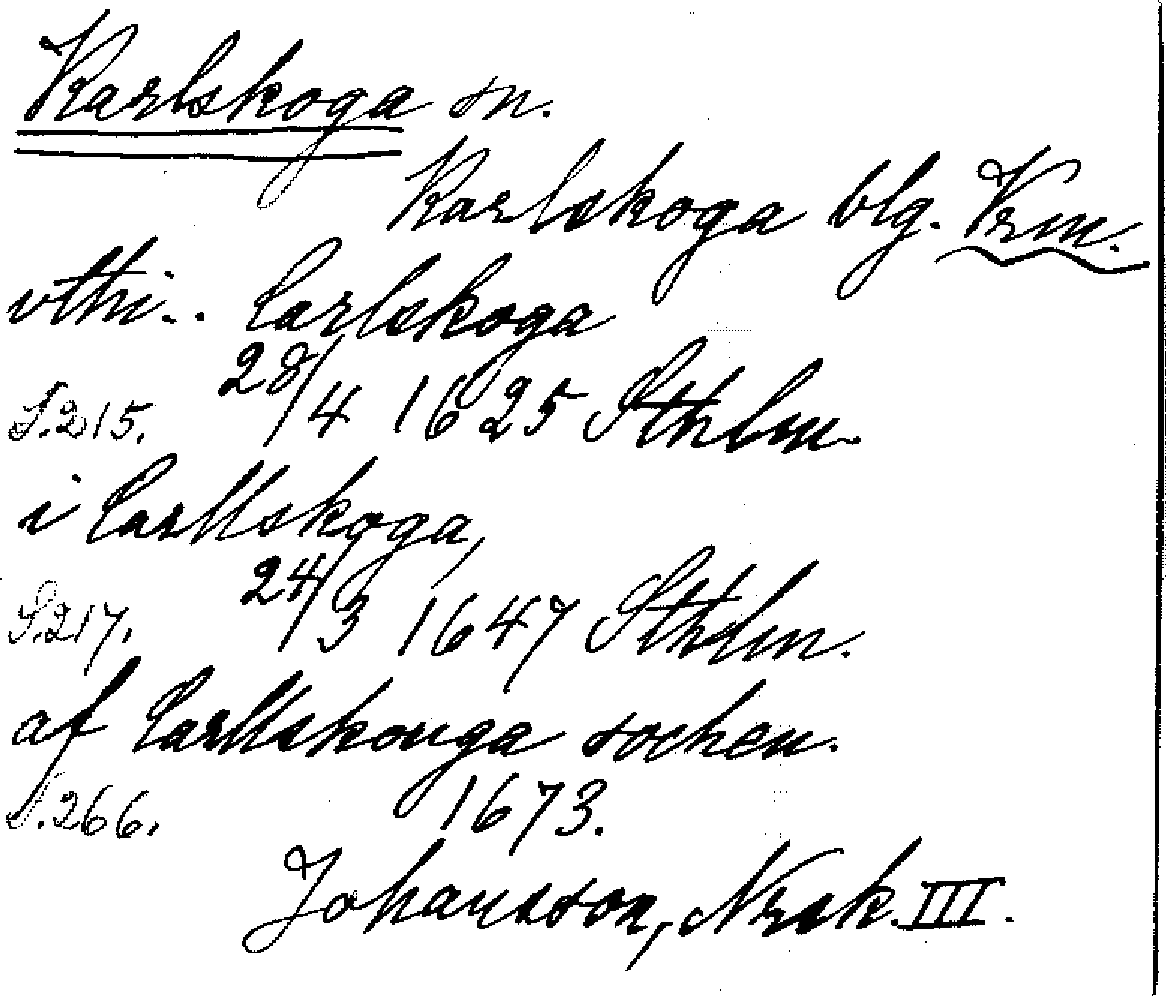 Karlskoga sn.
Karlskoga blg. Vrm.
vthi.. Carlskoga
S.215. 28/4 1625 Sthlm.
i Carllskoga,
S.217. 24/3 1647 Sthlm.
af Carllskouga sochen.
S.266. 1673.
Johansson, Nrsk. III.